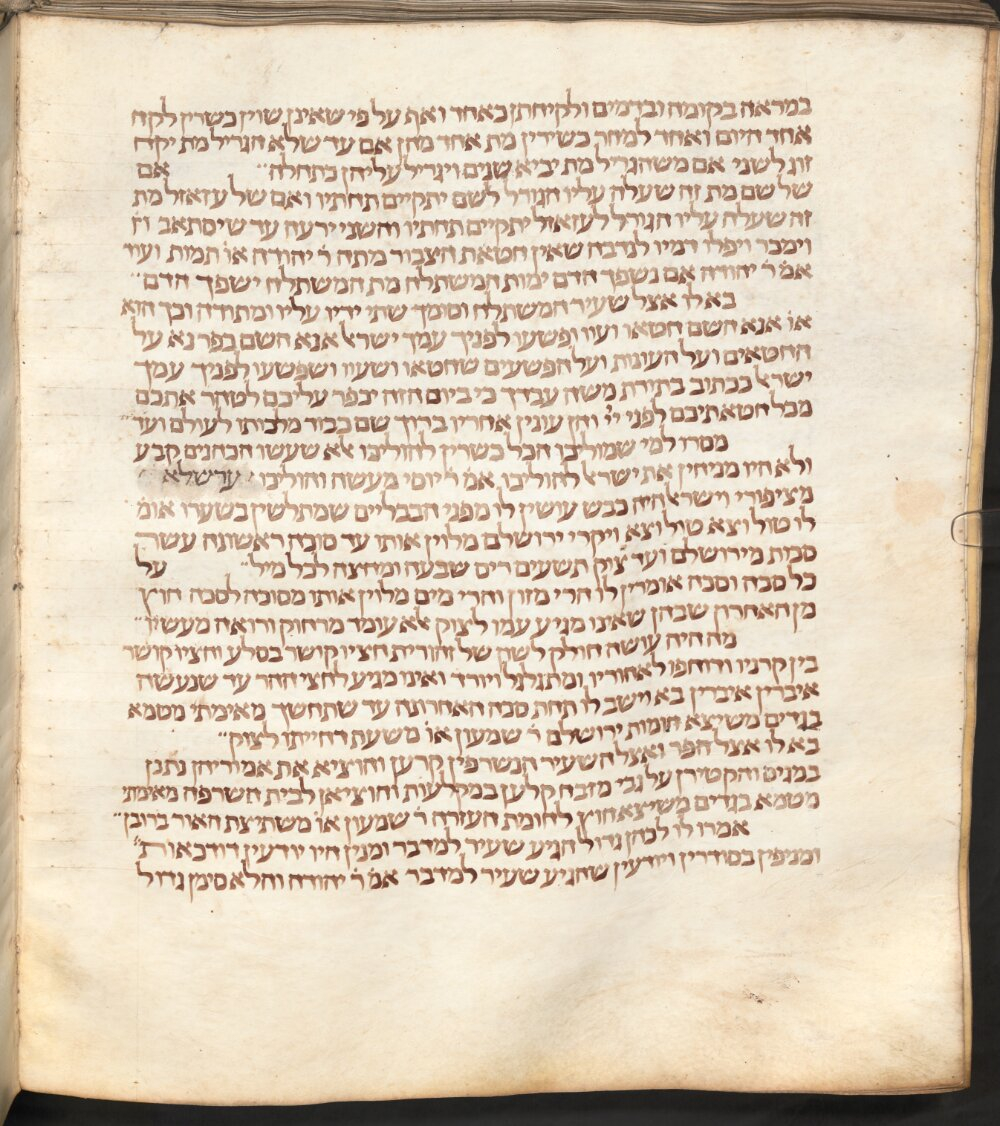 במראה בקומה ובדמים ולקיחתן כאחד ואף על פי שאינן שוין כשרין לקח
אחד היום ואחד למחר כשירין מת אחד מהן אם עד שלא הגריל מת יקח
זוג לשני אם משהגריל מת יביא שנים ויגריל עליהן כתחלה׃ אם
של שם מת זה שעלה עליו הגורל לשם יתקיים תחתיו ואם של עזאזל מת
זה שעלה עליו הגורל לעזאזל יתקיים תחתיו והשני ירעה עד שיסתאב
וימכר ויפלו דמיו לנדבה שאין חטאת הצבור מתה ר׳ יהודה או׳ תמות ועוד
אמ׳ ר׳ יהודה אם נשפך הדם ימות המשתלח מת המשתלח ישפך הדם׃
בא לו אצל שעיר המשתלח וסומך שתי ידיו עליו ומתודה וכך הוא
או׳ אנא השם חטאו ועוו ופשעו לפניך עמך ישראל אנא השם כפר נא על
החטאים ועל העונות ועל הפשעים שחטאו ושעוו ושפשעו לפניך עמך
ישראל ככתוב בתורת משה עבדך כי ביום הזה יכפר עליכם לטהר אתכם
מכל חטאתיכם לפני ייי והן עונין אחריו ברוך שם כבוד מלכותו לעולם ועד׃
מסרו למי שמוליכו הכל כשרין להוליכו אלא שעשו הכהנים קבע
ולא היו מניחין את ישראל להוליכו אמ׳ ר׳ יוסי מעשה והוליכו ערשלא
מציפורי וישראל היה כבש עושין לו מפני הבבליים שמתלשין בשערו אומ׳
לו טול וצא טול וצא ויקרי ירושלם מלוין אותו עד סוכה ראשונה עשר
סכות מירושלם ועד צוק תשעים ריס שבעה ומחצה לכל מיל׃ על
כל סכה וסכה אומרין לו הרי מזון והרי מים מלוין אותו מסוכה לסכה חוץ
מן האחרון שבהן שאינו מגיע עמו לצוק אלא עומד מרחוק ורואה מעשיו׃
מה היה עושה חולק לשון של זהורית חציו קושר בסלע וחציו קושר
בין קרניו ודוחפו לאחוריו ומתגלגל ויורד ואינו מגיע לחצי ההר עד שנעשה
איברין איברין בא וישב לו תחת סכה האחרונה עד שתחשך מאימתי מטמא
בגדים משיצא חומות ירושלם ר׳ שמעון או׳ משעת דחייתו לצוק׃
בא לו אצל הפר ואצל השעיר הנשרפין קרען והוציא את אמוריהן נתנן
במגיס והקטירן על גבי מזבח קלען במקלעות והוציאן לבית השרפה מאימתי
מטמא בגדים משיצא חוץ לחומת העזרה ר׳ שמעון או׳ משתיצת האור ברובן׃
אמרו לו לכהן גדול הגיע שעיר למדבר ומנין היו יודעין דודכאות
ומניפין בסודרין ויודעין שהגיע שעיר למדבר אמ׳ ר׳ יהודה והלא סימן גדול